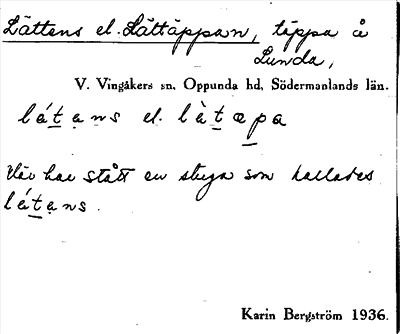 Lättens el. Lättäppan, täppa å
Lunda,
V. Vingåkers sn, Oppunda hd, Södermanlands län.
lát̲ạns el. làt̲æp̲a
Där har stått en stuga som kallades
lát̲ạns.
Karin Bergström 1936.